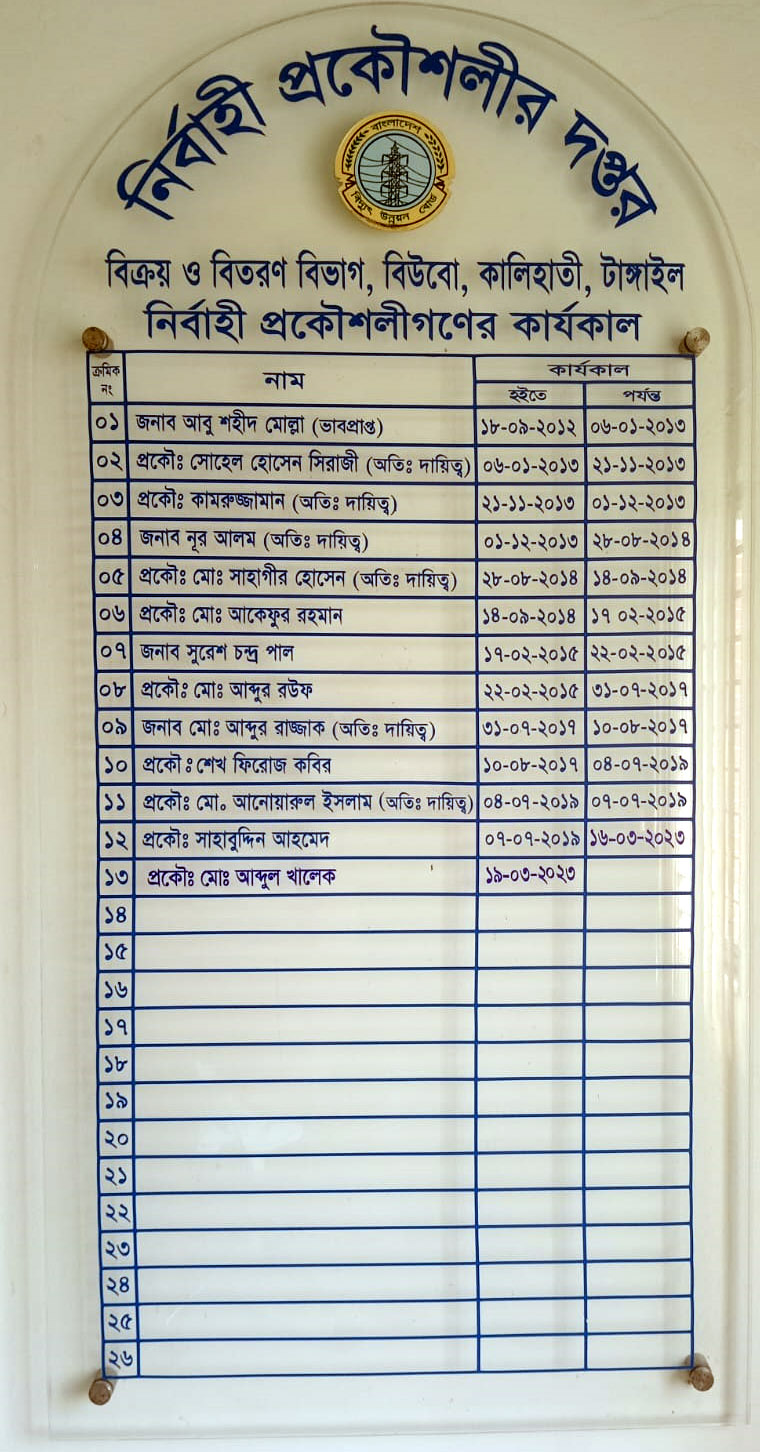 নির্বাহী প্রকৌশলীর দপ্তর
বাংলাদেশ
বিদ্যুৎ উন্নয়ন বোর্ড
বিক্রয় ও বিতরণ বিভাগ, বিউবো, কালিহাতী, টাঙ্গাইল
নির্বাহী প্রকৌশলীগণের কার্যকাল
ক্রমিক নং নাম কার্যকাল
হইতে পর্যন্ত
০১ জনাব আবু শহীদ মোল্লা (ভাবপ্রাপ্ত) ১৮-০৯-২০১২ ০৬-০১-২০১৩
০২ প্রকৌঃ সোহেল হোসেন সিরাজী (অতিঃ দায়িত্ব) ০৬-০১-২০১৩ ২১-১১-২০১৩
০৩ প্রকৌঃ কামরুজ্জামান (অতিঃ দায়িত্ব) ২১-১১-২০১৩ ০১-১২-২০১৩
০৪ জনাব নূর আলম (অতিঃ দায়িত্ব) ০১-১২-২০১৩ ২৮-০৮-২০১৪
০৫ প্রকৌঃ মোঃ সাহাগীর হোসেন (অতিঃ দায়িত্ব) ২৮-০৮-২০১৪ ১৪-০৯-২০১৪
০৬ প্রকৌঃ মোঃ আকেফুর রহমান ১৪-০৯-২০১৪ ১৭ ০২-২০১৫
০৭ জনাব সুরেশ চন্দ্র পাল ১৭-০২-২০১৫ ২২-০২-২০১৫
০৮ প্রকৌঃ মোঃ আব্দুর রউফ ২২-০২-২০১৫ ৩১-০৭-২০১৭
০৯ জনাব মোঃ আব্দুর রাজ্জাক (অতিঃ দায়িত্ব) ৩১-০৭-২০১৭ ১০-০৮-২০১৭
১০ প্রকৌঃ শেখ ফিরোজ কবির ১০-০৮-২০১৭ ০৪-০৭-২০১৯
১১ প্রকৌঃ মো. আনোয়ারুল ইসলাম (অতিঃ দায়িত্ব) ০৪-০৭-২০১৯ ০৭-০৭-২০১৯
১২ প্রকৌঃ সাহাবুদ্দিন আহমেদ ০৭-০৭-২০১৯ ১৬-০৩-২০২৩
১৩ প্রকৌঃ মোঃ আব্দুল খালেক ১৯-০৩-২০২৩
১৪
১৫
১৬
১৭
১৮
১৯
২০
২১
২২
২৩
২৪
২৫
২৬